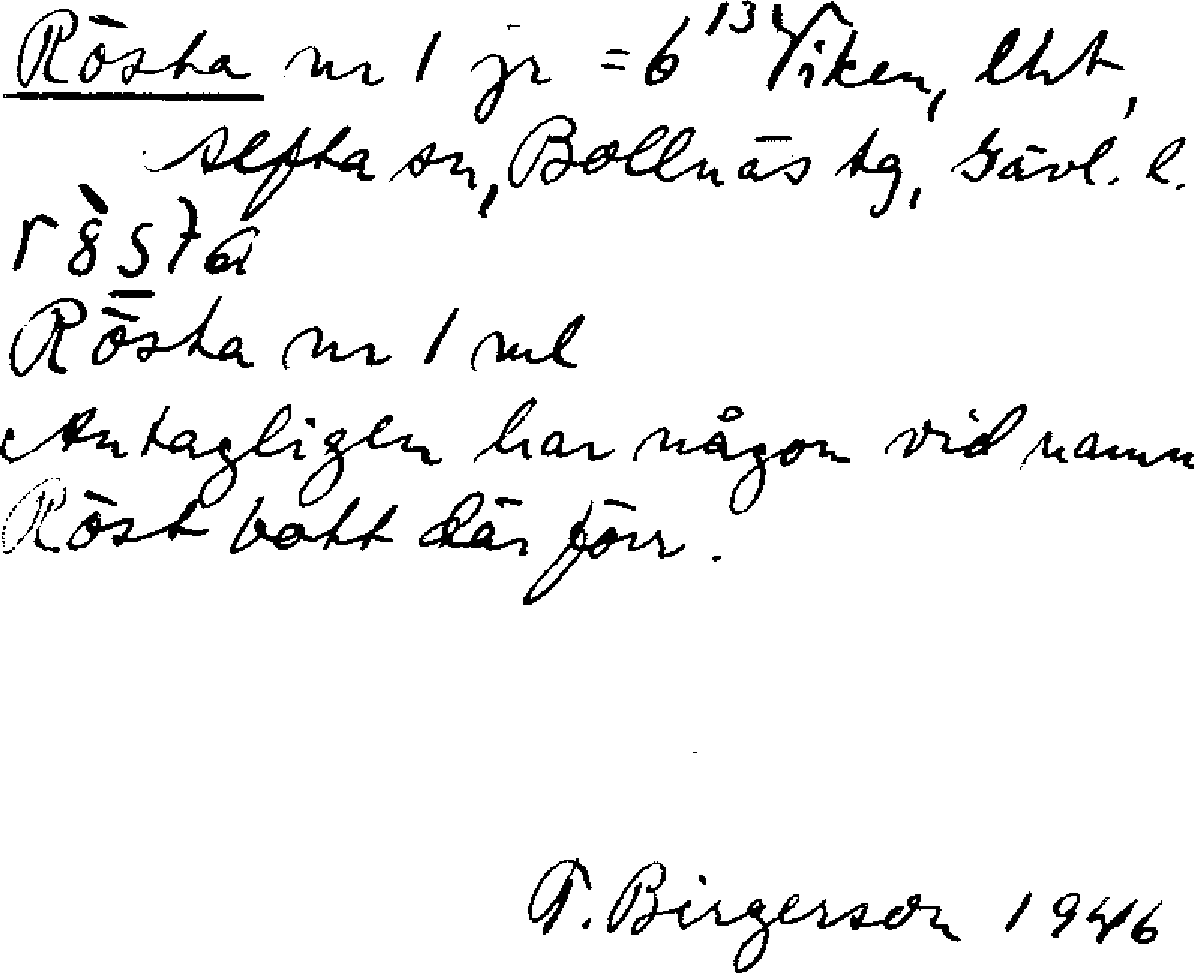 Rösta nr 1 jr = 6¹³ Viken, lht,
Alfta sn, Bollnäs tg, Gävl. l.
Rösta nr 1 ml
Antagligen har någon vid namn
Röst bott där förr.
T. Birgerson 1946